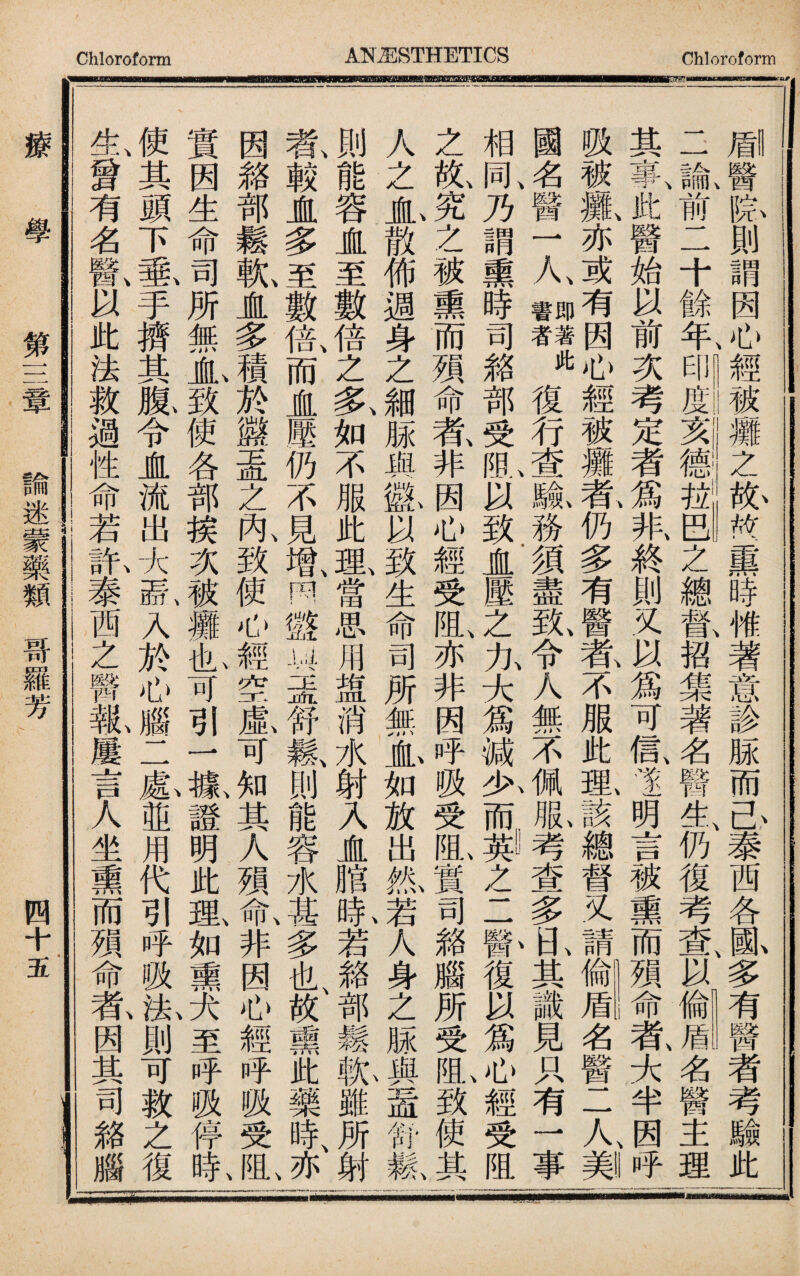 Chloroform ANÆSTHETICS Chloroform
盾醫院、則謂因心經被癱之故、故熏時惟著意診脉而已、泰西各國、多有醫者考驗此
二論、前二十餘年、印度亥德拉巴之總督、招集著名醫生、仍復考查、以倫盾名醫主理
其事、此醫始以前次考定者爲非、終則又以爲可信、遂明言被熏而殞命者、大半因呼
吸被癱、亦或有因心經被癱者、仍多有醫者、不服此理、該總督又請倫盾名醫二人、美
國名醫一人、卽著此書者復行查驗、務須盡致、令人無不佩服、考查多日、其識見只有一事
相同、乃謂熏時司絡部受阻、以致血壓之力、大爲減少、而英之二醫、復以爲心經受阻
之故、究之被熏而殞命者、非因心經受阻、亦非因呼吸受阻、實司絡腦所受阻、致使其
人之血、散佈週身之細脉與䘕、以致生命司所無血、如放出然、若人身之脉與衁舒鬆、
則能容血至數倍之多、如不服此理、當思用塩消水射入血脘時、若絡部鬆軟、雖所射
者、較血多至數倍、而血壓仍不見增、因䘕與衁舒鬆、則能容水甚多也、故熏此藥時、亦
因絡部鬆軟、血多積於䘕衁之內、致使心經空虛、可知其人殞命、非因心經呼吸受阻、
實因生命司所無血、致使各部挨次被癱也、可引一據、證明此理、如熏犬至呼吸停時、
使其頭下垂、手擠其腹、令血流出大衁、入於心腦二處、並用代引呼吸法、則可救之復
生、曾有名醫、以此法救過性命若許、泰西之醫報、屢言人坐熏而殞命者、因其司絡腦
療學 第三章 論迷蒙藥類 哥羅芳 四十五